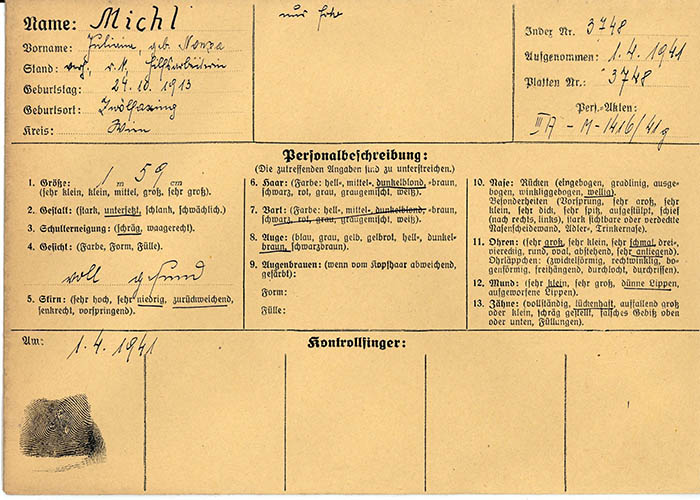 Name: Michl
Vorname: Juliana, geb.
Stand: verh., r.k., Hilfsarbeiterin
Geburtstag: 24.10.1913
Geburtsort: Zwölfaxing
Kreis: Wien
nur
Index Nr. 3748
Aufgenommen: 1.4.1941
Platten Nr.: 3748
Pers.-Akten:
III A - M - 1416/41 g
Personalbeschreibung:
(Die zutreffenden Angaben sind zu unterstreichen.)
1. Größe: 1 m 59 cm
(sehr klein, klein, mittel, groß, sehr groß).
2. Gestalt: (stark, untersetzt, schlank, schwächlich.)
3. Schulterneigung: (schräg, waagerecht.)
4. Gesicht: (Farbe, Form, Fülle).
voll gesund
5. Stirn: (sehr hoch, sehr niedrig, zurückweichend,
senkrecht, vorspringend).
6. Haar: (Farbe: hell-, mittel-, dunkelblond, -braun,
schwarz, rot, grau, graugemischt, weiß).
7. Bart: (Farbe: hell-, mittel- dunkelblond, -braun,
schwarz, rot, grau, graugemischt, weiß).
8. Auge: (blau, grau, gelb, gelbrot, hell-, dunkel-
braun, schwarzbraun).
9. Augenbrauen: (wenn vom Kopfhaar abweichend,
gefärbt):
Form:
Fülle:
10. Nase: Rücken (eingebogen, gradlinig, ausge-
bogen, winkliggebogen, wellig).
Besonderheiten (Vorsprung, sehr groß, sehr
klein, sehr dick, sehr spitz, aufgestülpt, schief
(nach rechts, links), stark sichtbare oder verdeckte
Nasenscheidewand, Adler-, Trinkernase).
11. Ohren: (sehr groß, sehr klein, sehr schmal, drei-,
viereckig, rund, oval, abstehend, sehr anliegend).
Ohrläppchen: (zwickelförmig, rechtwinklig, bo-
genförmig, freihängend, durchlocht, durchrissen).
12. Mund: (sehr klein, sehr groß, dünne Lippen,
aufgeworfene Lippen).
13. Zähne: (vollständig, lückenhaft, auffallend groß
oder klein, schräg gestellt, falsches Gebiß oben
oder unten, Füllungen).
Am: 1.4.1941
Kontrollfinger: